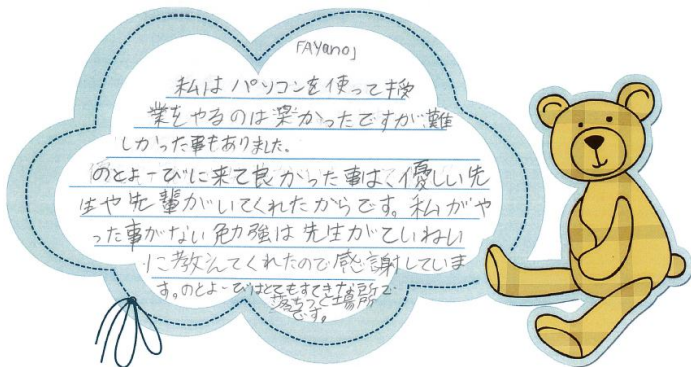 「AYano」
私はパソコンを使って授
業をやるのは楽かったですが、難
しかった事もありました。
のとよーびに来て良かった事は、優しい先
生や先輩がいてくれたからです。私がや
った事がない勉強は先生がていねい
に教えてくれたので感謝していま
す。のとよーびはとてもすてきな所で
落ちつく場所
です。